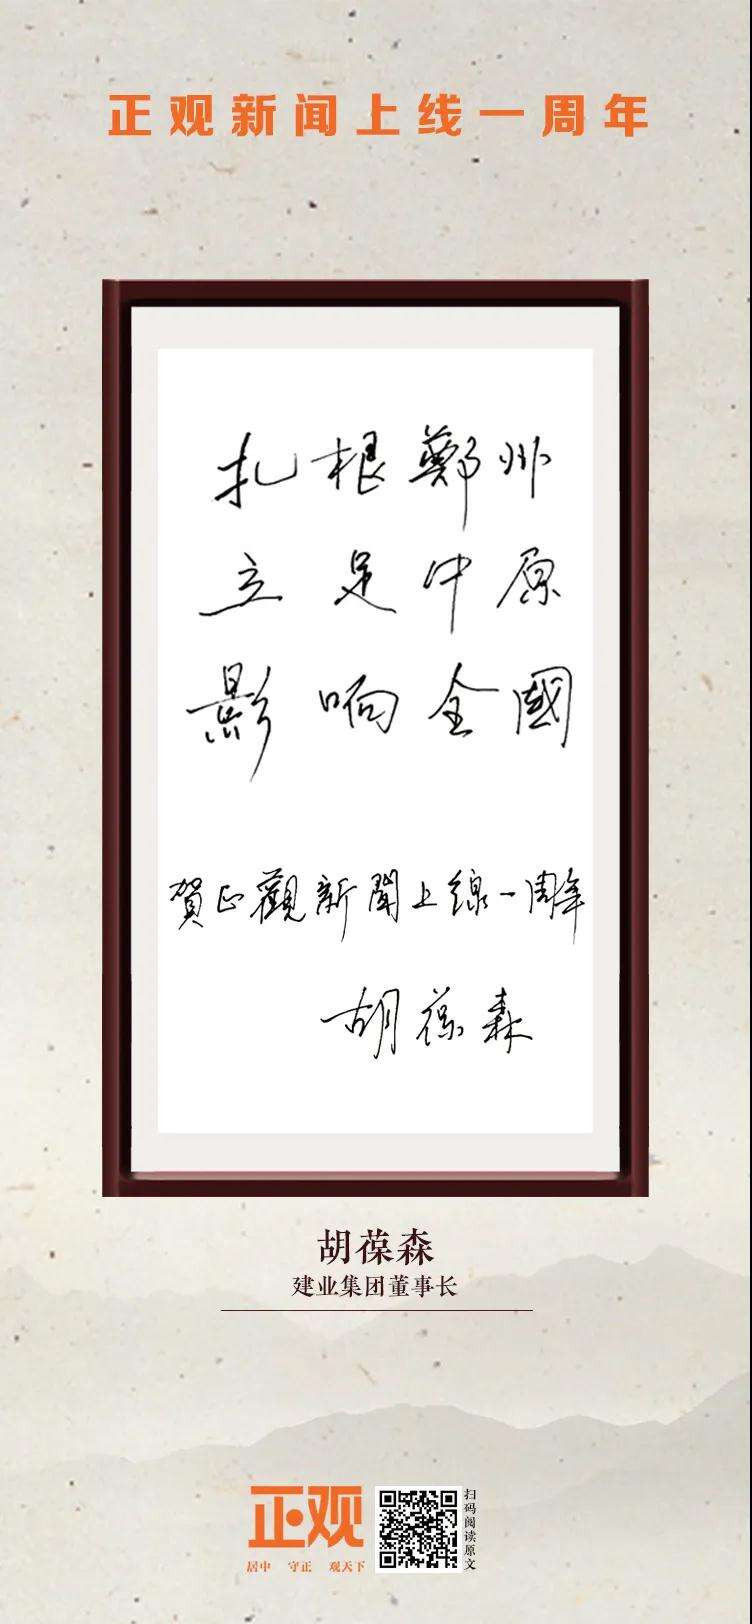 正观新闻上线一周年
扎根鄭州
立足中原
影响全國
賀正觀新聞上線一周年
胡葆森
胡葆森
建业集团董事长
正观
居中 守正 观天下
扫码阅读原文